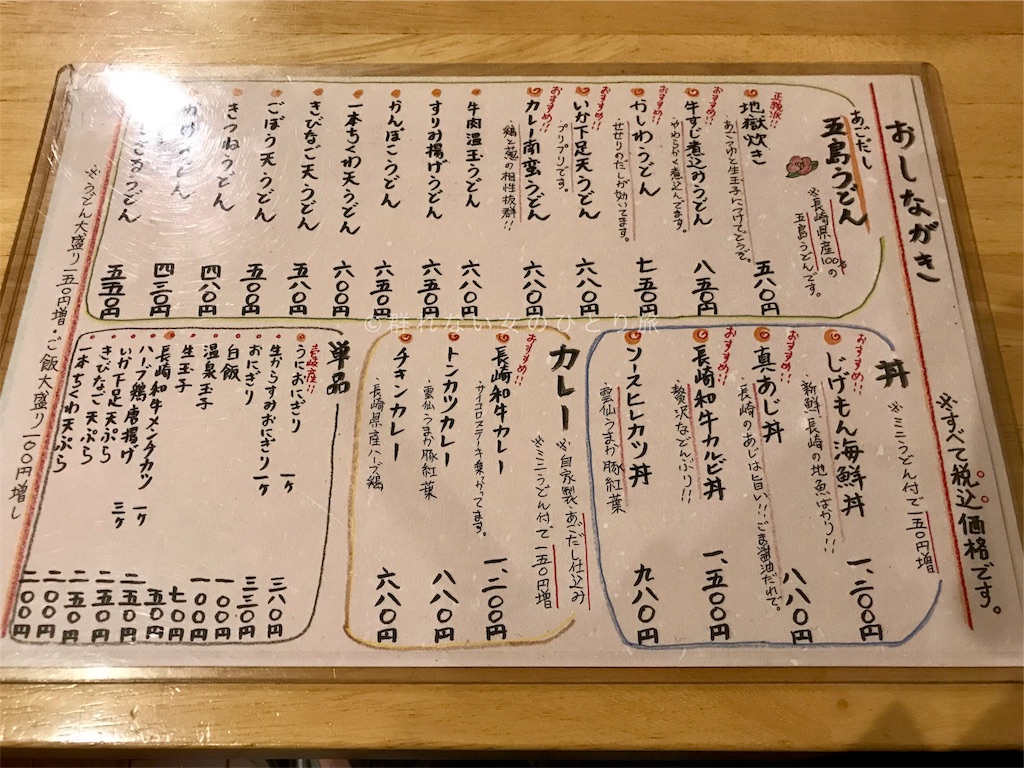 おしながき
※すべて税込価格です。
あごだし
五島うどん
※長崎県産100%の
五島うどんです。
正統派!!
地獄炊き 五八〇円
あごつゆと生玉子につけてどうぞ。
おすすめ!!
牛すじ煮込みうどん 八五〇円
やわらかく煮込んでます。
おすすめ!!
かしわうどん 七五〇円
せせりのだしが効いてます。
おすすめ!!
いか下足天うどん 六八〇円
プリプリです。
おすすめ!!
カレー南蛮うどん 六八〇円
鶏と葱の相性抜群!!
牛肉温玉うどん 六八〇円
すりみ揚げうどん 六五〇円
かんぼこうどん 六五〇円
一本ちくわ天うどん 六〇〇円
きびなご天うどん 五八〇円
ごぼう天うどん 五五〇円
きつねうどん 四八〇円
かけうどん 四三〇円
ざるうどん 五五〇円
丼
※ミニうどん付で一五〇円増
おすすめ!!
じげもん海鮮丼 一、二〇〇円
新鮮・長崎の地魚ばかり!!
おすすめ!!
真あじ丼 八八〇円
長崎のあじは旨い!!ごま醤油だれで。
おすすめ!!
長崎和牛カルビ丼 一、五〇〇円
贅沢などんぶり!!
ソースヒレカツ丼 九八〇円
雲仙うまか豚紅葉
カレー
※自家製・あごだし仕込み
※ミニうどん付で一五〇円増
おすすめ!!
長崎和牛カレー 一、二〇〇円
サイコロステーキ乗かってます。
トンカツカレー 八八〇円
・雲仙うまか豚紅葉
チキンカレー 六八〇円
・長崎県産ハーブ鶏
単品
壱岐産!!
うにおにぎり 一ヶ 三八〇円
生からすみおにぎり 一ヶ 三三〇円
おにぎり 一〇〇円
白飯 一〇〇円
温泉玉子 七〇円
生玉子 五〇円
長崎和牛メンチカツ 一ヶ 二五〇円
ハーブ鶏唐揚げ 三ヶ 二五〇円
いか下足天ぷら 二五〇円
きびなご天ぷら 二〇〇円
一本ちくわ天ぷら 二〇〇円
※うどん大盛り一五〇円増・ご飯大盛り一〇〇円増し
©群れない女のひとり旅